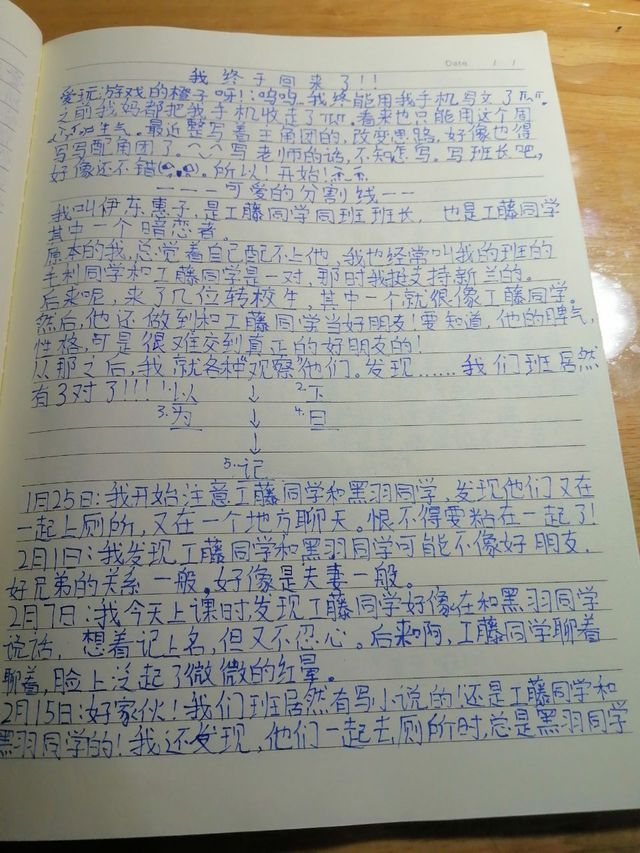 Date / /
我终于回来了!!!
爱玩游戏的橙子呀!:呜呜..我终能用我手机写文了πππ.
之前我妈都把我手机收走了πππ.看来也只能用这个周
生气.最近整写着主角团的,改变思路,好像也得
写写配角团了.^_^写老师的话,不知怎写.写班长吧,
好像还不错.所以!开始!
---可爱的分割线---
我叫伊东惠子,是工藤同学同班班长,也是工藤同学
其中一个暗恋者。
原本的我,总觉着自己配不上他,我也经常叫我的班的
毛利同学和工藤同学是一对,那时我挺支持新兰的。
后来呢,来了几位转校生,其中一个就很像工藤同学。
然后,他还做到和工藤同学当好朋友!要知道,他的脾气,
性格,可是很难交到真正的好朋友的!
从那之后,我就各种观察他们。发现......我们班居然
有3对了!!! 1.以 ↓ 2.下
3.为 ↓ 4.日
↓
5.记
1月25日:我开始注意工藤同学和黑羽同学,发现他们又在
一起上厕所,又在一个地方聊天。恨不得要粘在一起了!
2月1日:我发现工藤同学和黑羽同学可能不像好朋友,
好兄弟的关系一般。好像是夫妻一般。
2月7日:我今天上课时,发现工藤同学好像在和黑羽同学
说话,想着记上名,但又不忍心。后来啊,工藤同学聊着
聊着,脸上泛起了微微的红晕。
2月15日:好家伙!我们班居然有写小说的!还是工藤同学和
黑羽同学的!我还发现,他们一起去厕所时,总是黑羽同学